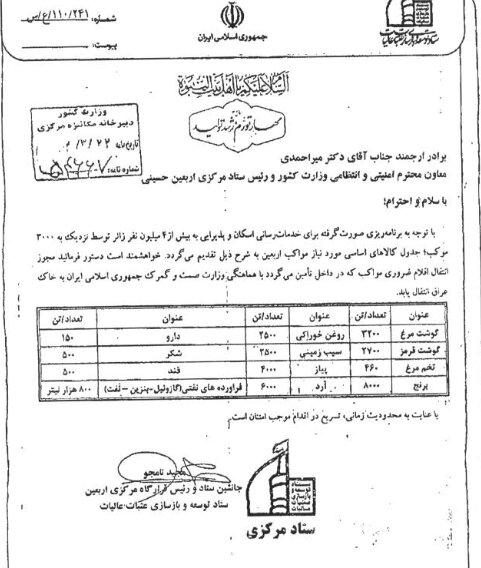 شماره: ۱۱۰/۲۴۱/ع/ص
پیوست:
جمهوری اسلامی ایران
السلام علیکم یا اهل بیت النبوه
مهار تورم، رشد تولید
وزارت کشور
دبیرخانه مکانیزه مرکزی
تاریخ نامه
شماره نامه:
برادر ارجمند جناب آقای دکتر میراحمدی
معاون محترم امنیتی و انتظامی وزارت کشور و رئیس ستاد مرکزی اربعین حسینی
با سلام و احترام؛
با توجه به برنامه‌ریزی صورت‌گرفته برای خدمات‌رسانی اسکان و پذیرایی به بیش از ۴ میلیون نفر زائر توسط نزدیک به ۳۰۰۰
موکب؛ جدول کالاهای اساسی مورد نیاز مواکب اربعین به شرح ذیل تقدیم می‌گردد. خواهشمند است دستور فرمائید مجوز
انتقال اقلام ضروری مواکب که در داخل تأمین می‌گردد با هماهنگی وزارت صمت و گمرک جمهوری اسلامی ایران به خاک
عراق انتقال یابد.
عنوان تعداد/تن عنوان تعداد/تن عنوان تعداد/تن
گوشت مرغ ۳۲۰۰ روغن خوراکی ۲۵۰۰ دارو ۱۵۰
گوشت قرمز ۲۷۰۰ سیب زمینی ۲۵۰۰ شکر ۵۰۰
تخم مرغ ۴۶۰ پیاز ۴۰۰۰ قند ۵۰۰
برنج ۸۰۰۰ آرد ۶۰۰۰ فراورده های نفتی(گازوئیل-بنزین-نفت) ۸۰۰ هزار لیتر
با عنایت به محدودیت زمانی، تسریع در اقدام موجب امتنان است.
مجید نامجو
جانشین ستاد و رئیس قرارگاه مرکزی اربعین
ستاد توسعه و بازسازی عتبات عالیات
ستاد
توسعه و
بازسازی
عتبات
عالیات
ستاد مرکزی